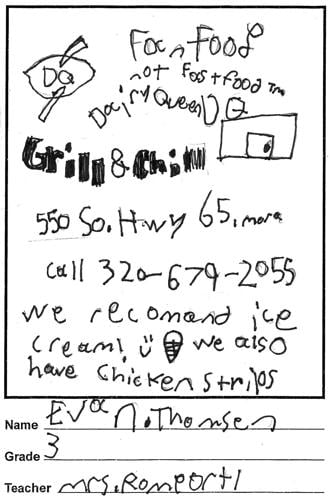 Fan Food
DQ
not Fast Food TM
Dairy Queen DQ
Grill & Chill
550 So. Hwy 65, mora
Call 320-679-2055
We recomand ice
cream! We also
have chicken strips
Name Eva N. Thomsen
Grade 3
Teacher mrs. Romportl